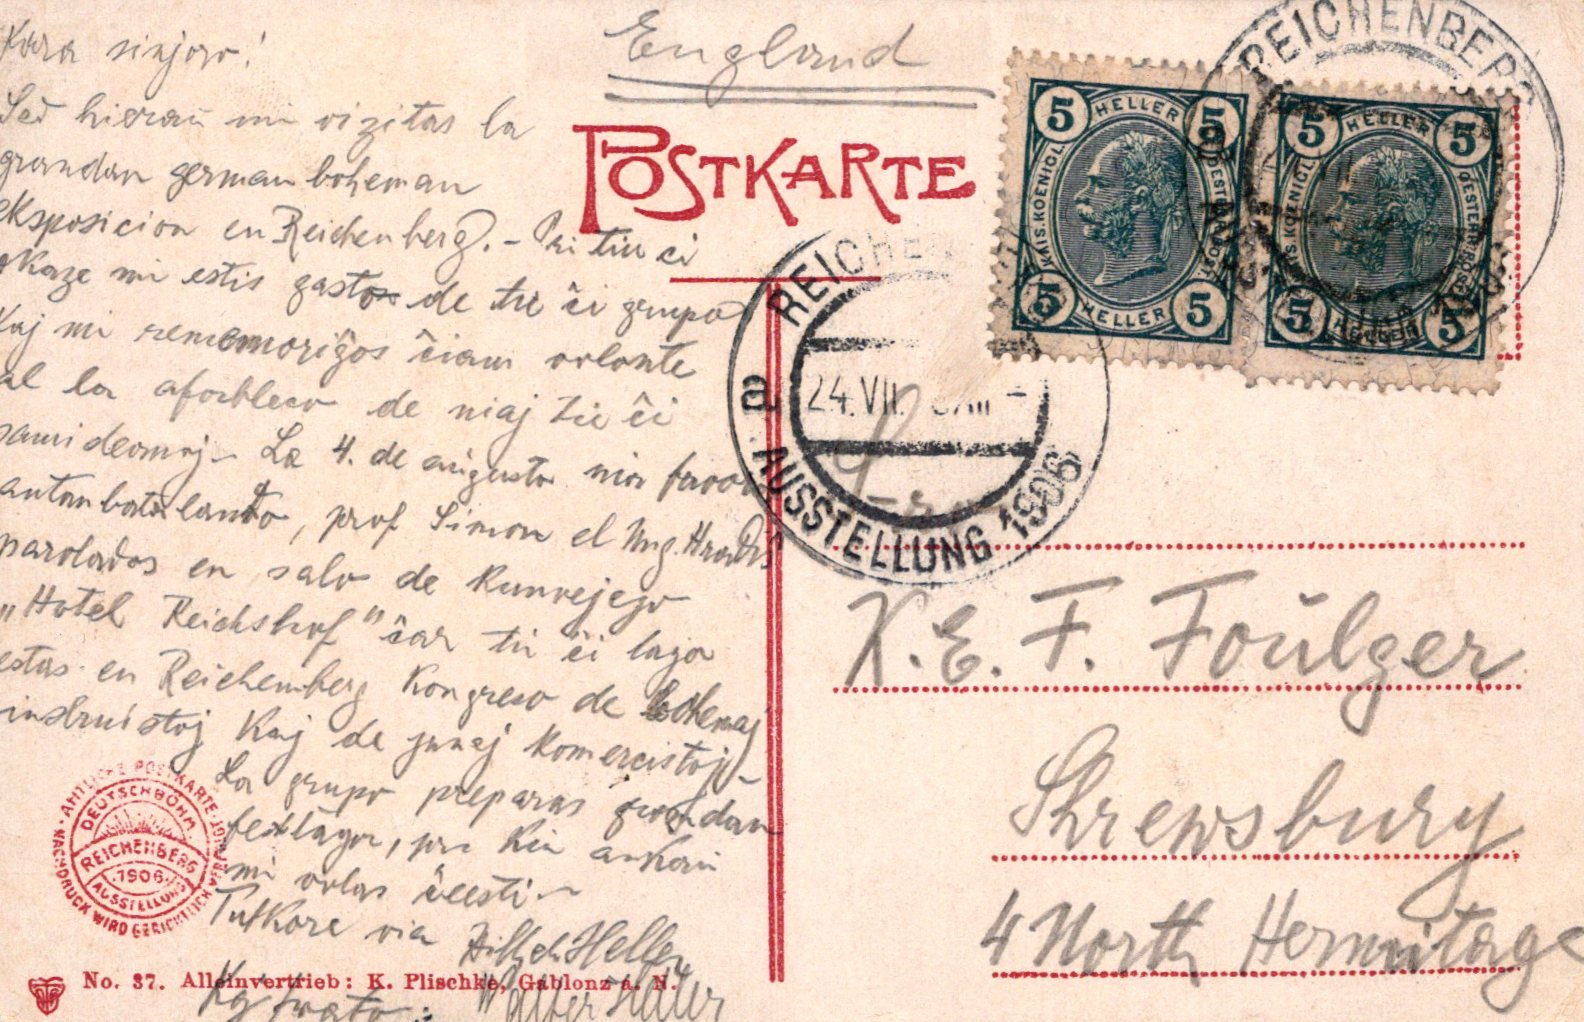 Kara sinjoro!
Ĵaŭ hieraŭ mi vizitas la
grandan german boheman
ekspozicion en Reichenberg. - Pri tiu ĉi
okaze mi estis gasto de tiu ĉi grupo
kaj mi rememoriĝos ĉiam volonte
al la afableco de niaj tie ĉi
samideanoj - La 4. de aŭgusto nia
antaŭbatalanto, prof Simon el
parolados en salo de kunvejego
„Hotel Reichshof" ĉar tiu ĉi tago
estas en Reichemberg kongreso de bohemaj
instruistoj kaj de junaj komercistoj -
La grupo preparas grandan
festtagon, pri kiu ankaŭ
mi volas ĉeesti -
Tutkore via
Heller
Kaj frato: Walter Heller
England
POSTKARTE
5 HELLER 5
KAIS. KOENIGL. OESTERR. POST
5 HELLER 5
5 HELLER 5
KAIS. KOENIGL. OESTERR. POST
5 HELLER 5
REICHENBERG
REICHENBERG
24. VII.
a
AUSSTELLUNG 1906
K. E. F. Foulger
Shrewsbury
4 North Hermitage
AMTLICHE POSTKARTE
NACHDRUCK WIRD GERICHTLICH
DEUTSCHBÖHM.
REICHENBERG
1906
AUSSTELLUNG
No. 37. Alleinvertrieb: K. Plischke, Gablonz a. N.